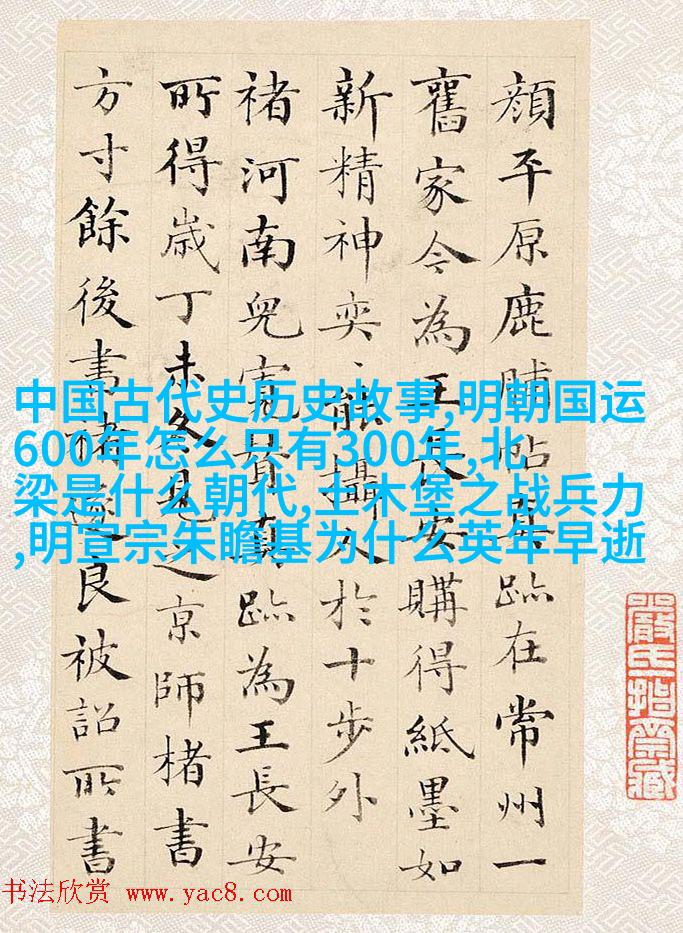 顔平原鹿脯帖真跡在常州一
舊家今為王長安購得紙墨如
新精神奕、能攝人於十步外
褚河南兒寬賛真跡為王長安
所得嵗丁未冬見之京師楮書
方寸餘後書褚遂良被詔所書
中国古代史历史故事,明朝国运
600年怎么只有300年,北
梁是什么朝代,土木堡之战兵力
,明宣宗朱瞻基为什么英年早逝
嚴氏藏
书法欣赏 www.yac8.com